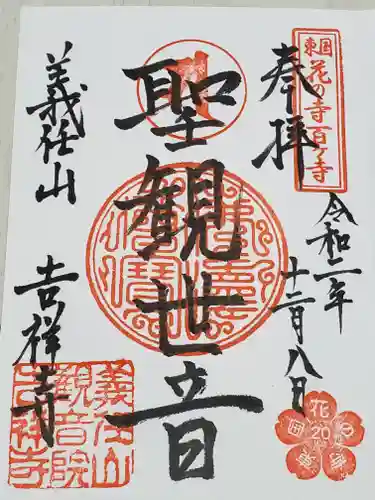 東国花の寺百ケ寺
奉拝
令和二年
十二月八日
聖観世音
義任山
吉祥寺
義任山
観音院
吉祥寺
花
20